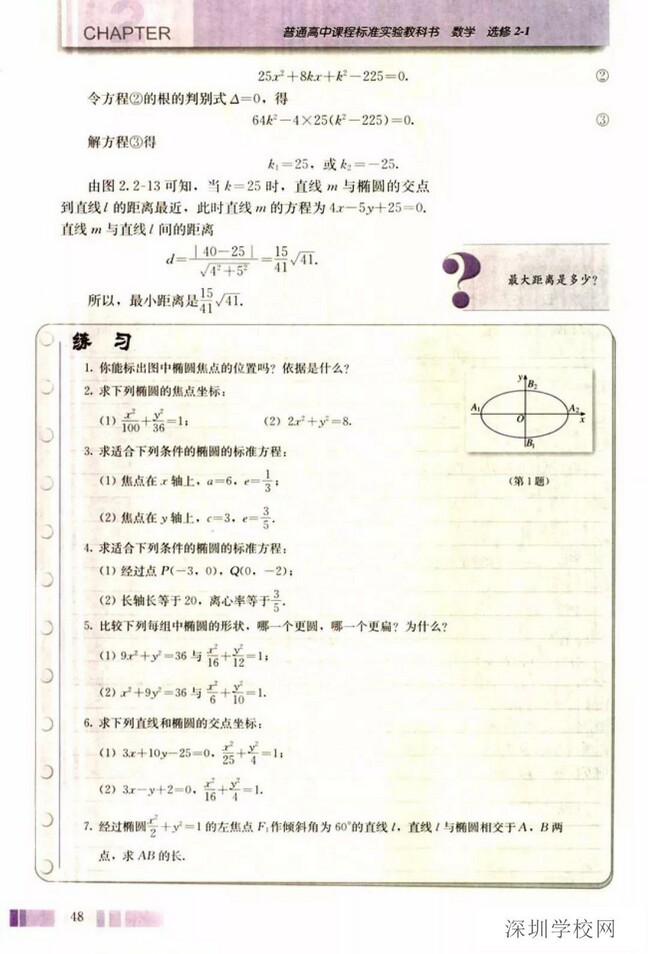 CHAPTER 2
普通高中课程标准实验教科书 数学 选修 2-1
25x²+8kx+k²-225=0. ②
令方程②的根的判别式 Δ=0，得
64k²-4×25(k²-225)=0. ③
解方程③得
k₁=25，或 k₂=-25.
由图 2.2-13 可知，当 k=25 时，直线 m 与椭圆的交点
到直线 l 的距离最近，此时直线 m 的方程为 4x-5y+25=0.
直线 m 与直线 l 间的距离
d=|40-25|/√(4²+5²)=15/41√41.
所以，最小距离是15/41√41.
? 最大距离是多少?
练 习
1. 你能标出图中椭圆焦点的位置吗? 依据是什么?
2. 求下列椭圆的焦点坐标:
(1) x²/100+y²/36=1; (2) 2x²+y²=8.
y B₂
A₁ O A₂ x
B₁
(第 1 题)
3. 求适合下列条件的椭圆的标准方程:
(1) 焦点在 x 轴上，a=6，e=1/3;
(2) 焦点在 y 轴上，c=3，e=3/5.
4. 求适合下列条件的椭圆的标准方程:
(1) 经过点 P(-3，0)，Q(0，-2);
(2) 长轴长等于 20，离心率等于3/5.
5. 比较下列每组中椭圆的形状，哪一个更圆，哪一个更扁? 为什么?
(1) 9x²+y²=36 与 x²/16+y²/12=1;
(2) x²+9y²=36 与 x²/6+y²/10=1.
6. 求下列直线和椭圆的交点坐标:
(1) 3x+10y-25=0，x²/25+y²/4=1;
(2) 3x-y+2=0，x²/16+y²/4=1.
7. 经过椭圆x²/2+y²=1 的左焦点 F₁作倾斜角为 60°的直线 l，直线 l 与椭圆相交于 A，B 两
点，求 AB 的长.
48
深圳学校网